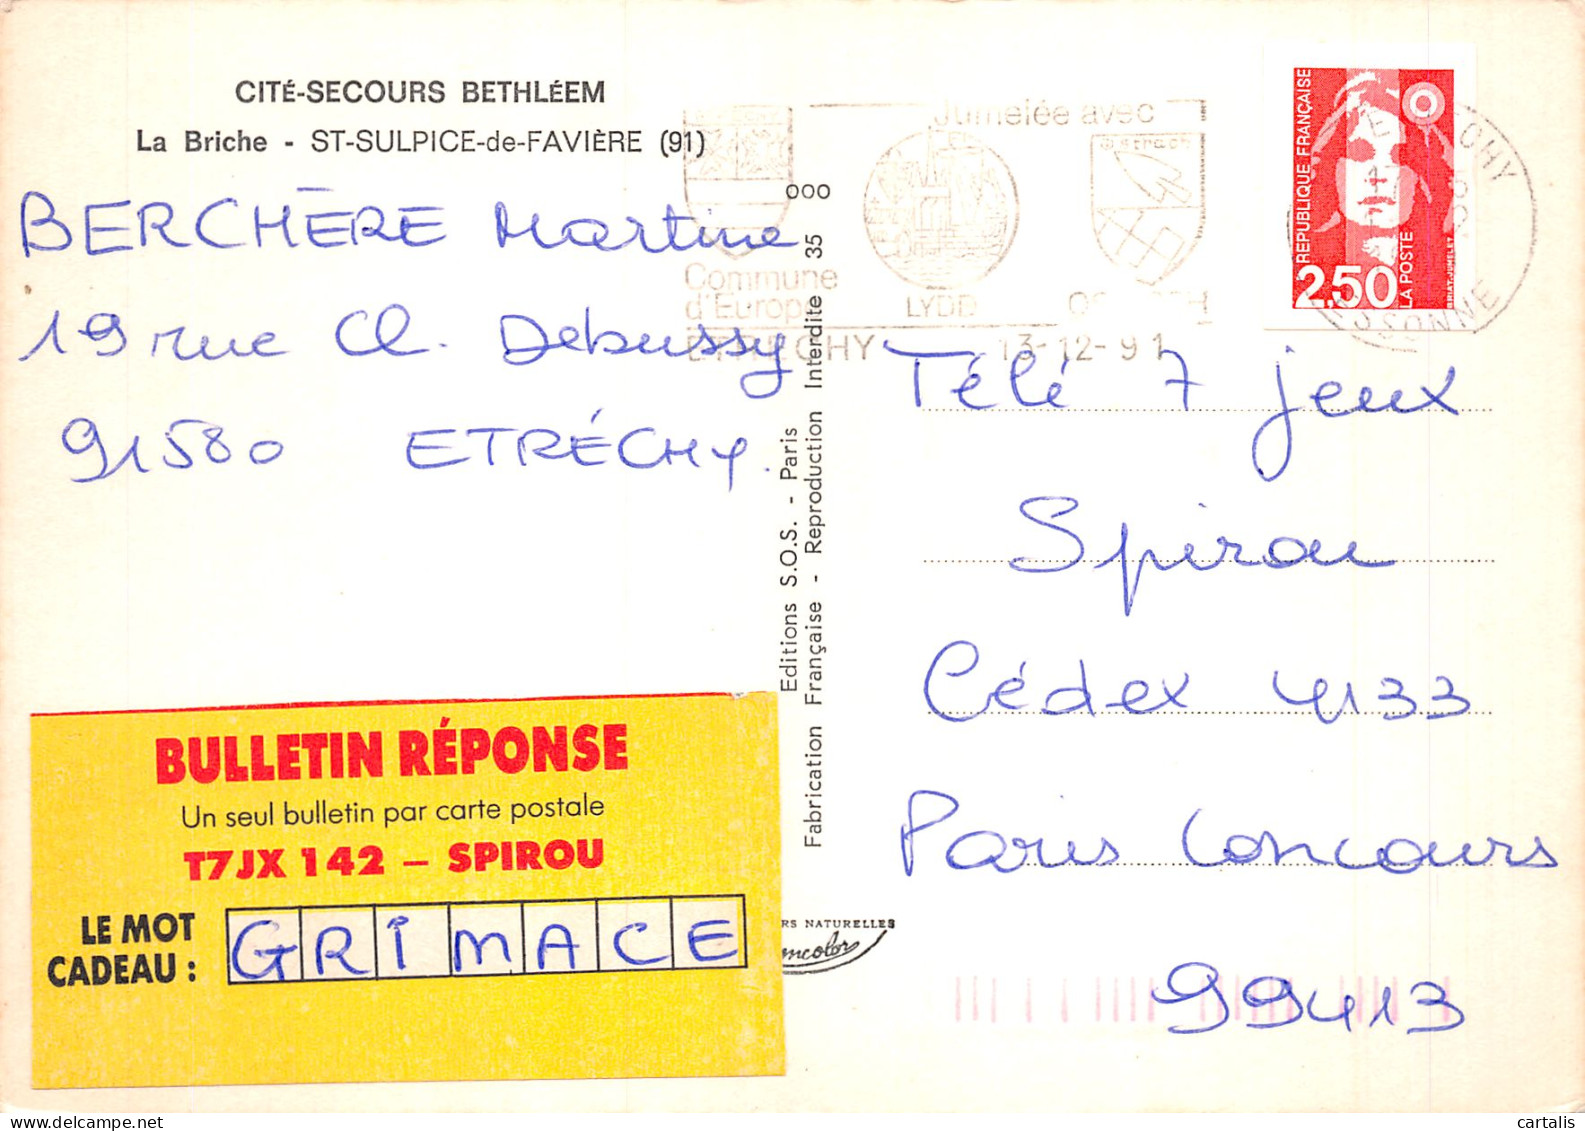 CITÉ-SECOURS BETHLÉEM
La Briche - ST-SULPICE-de-FAVIÈRE (91)
BERCHÈRE Martine
19 rue Cl. Debussy
91580 ETRÉCHY.
Jumelée avec
Commune
d'Europe
LYDD
ETRECHY 13-12-91
ESSONNE
RÉPUBLIQUE FRANÇAISE
2,50
LA POSTE
000
Editions S.O.S. - Paris
Fabrication Française - Reproduction Interdite 35
Télé 7 jeux
Spirou
Cédex 4133
Paris Concours
99413
BULLETIN RÉPONSE
Un seul bulletin par carte postale
T7JX 142 – SPIROU
LE MOT
CADEAU :
GRIMACE
RS NATURELLES
cartalis